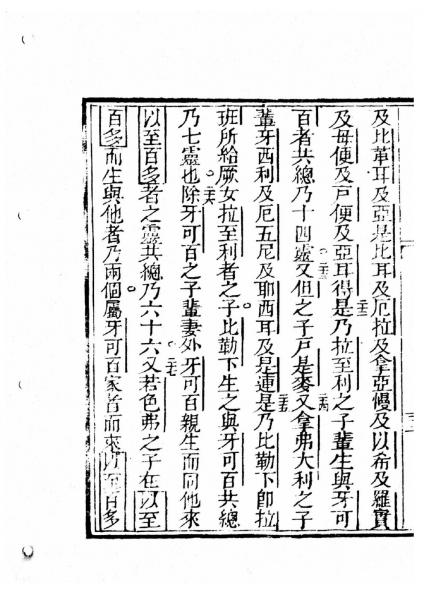 及比革耳及亞是比耳及厄拉及拿亞慢及以希及羅實
及母便及戸便及亞耳得是乃拉至利之子輩生與牙可
百者共總乃十四靈又但之子戸是麥又拿弗大利之子
輩牙西利及厄五尼及耶西耳及是連是乃比勒下卽拉
班所給厥女拉至利者之子比勒下生之與牙可百共總
乃七靈也除牙可百之子輩妻外牙可百親生而同他來
以至百多者之靈共總乃六十六又若色弗之子在以至
百多而生與他者乃兩個屬牙可百家者而來以至百多